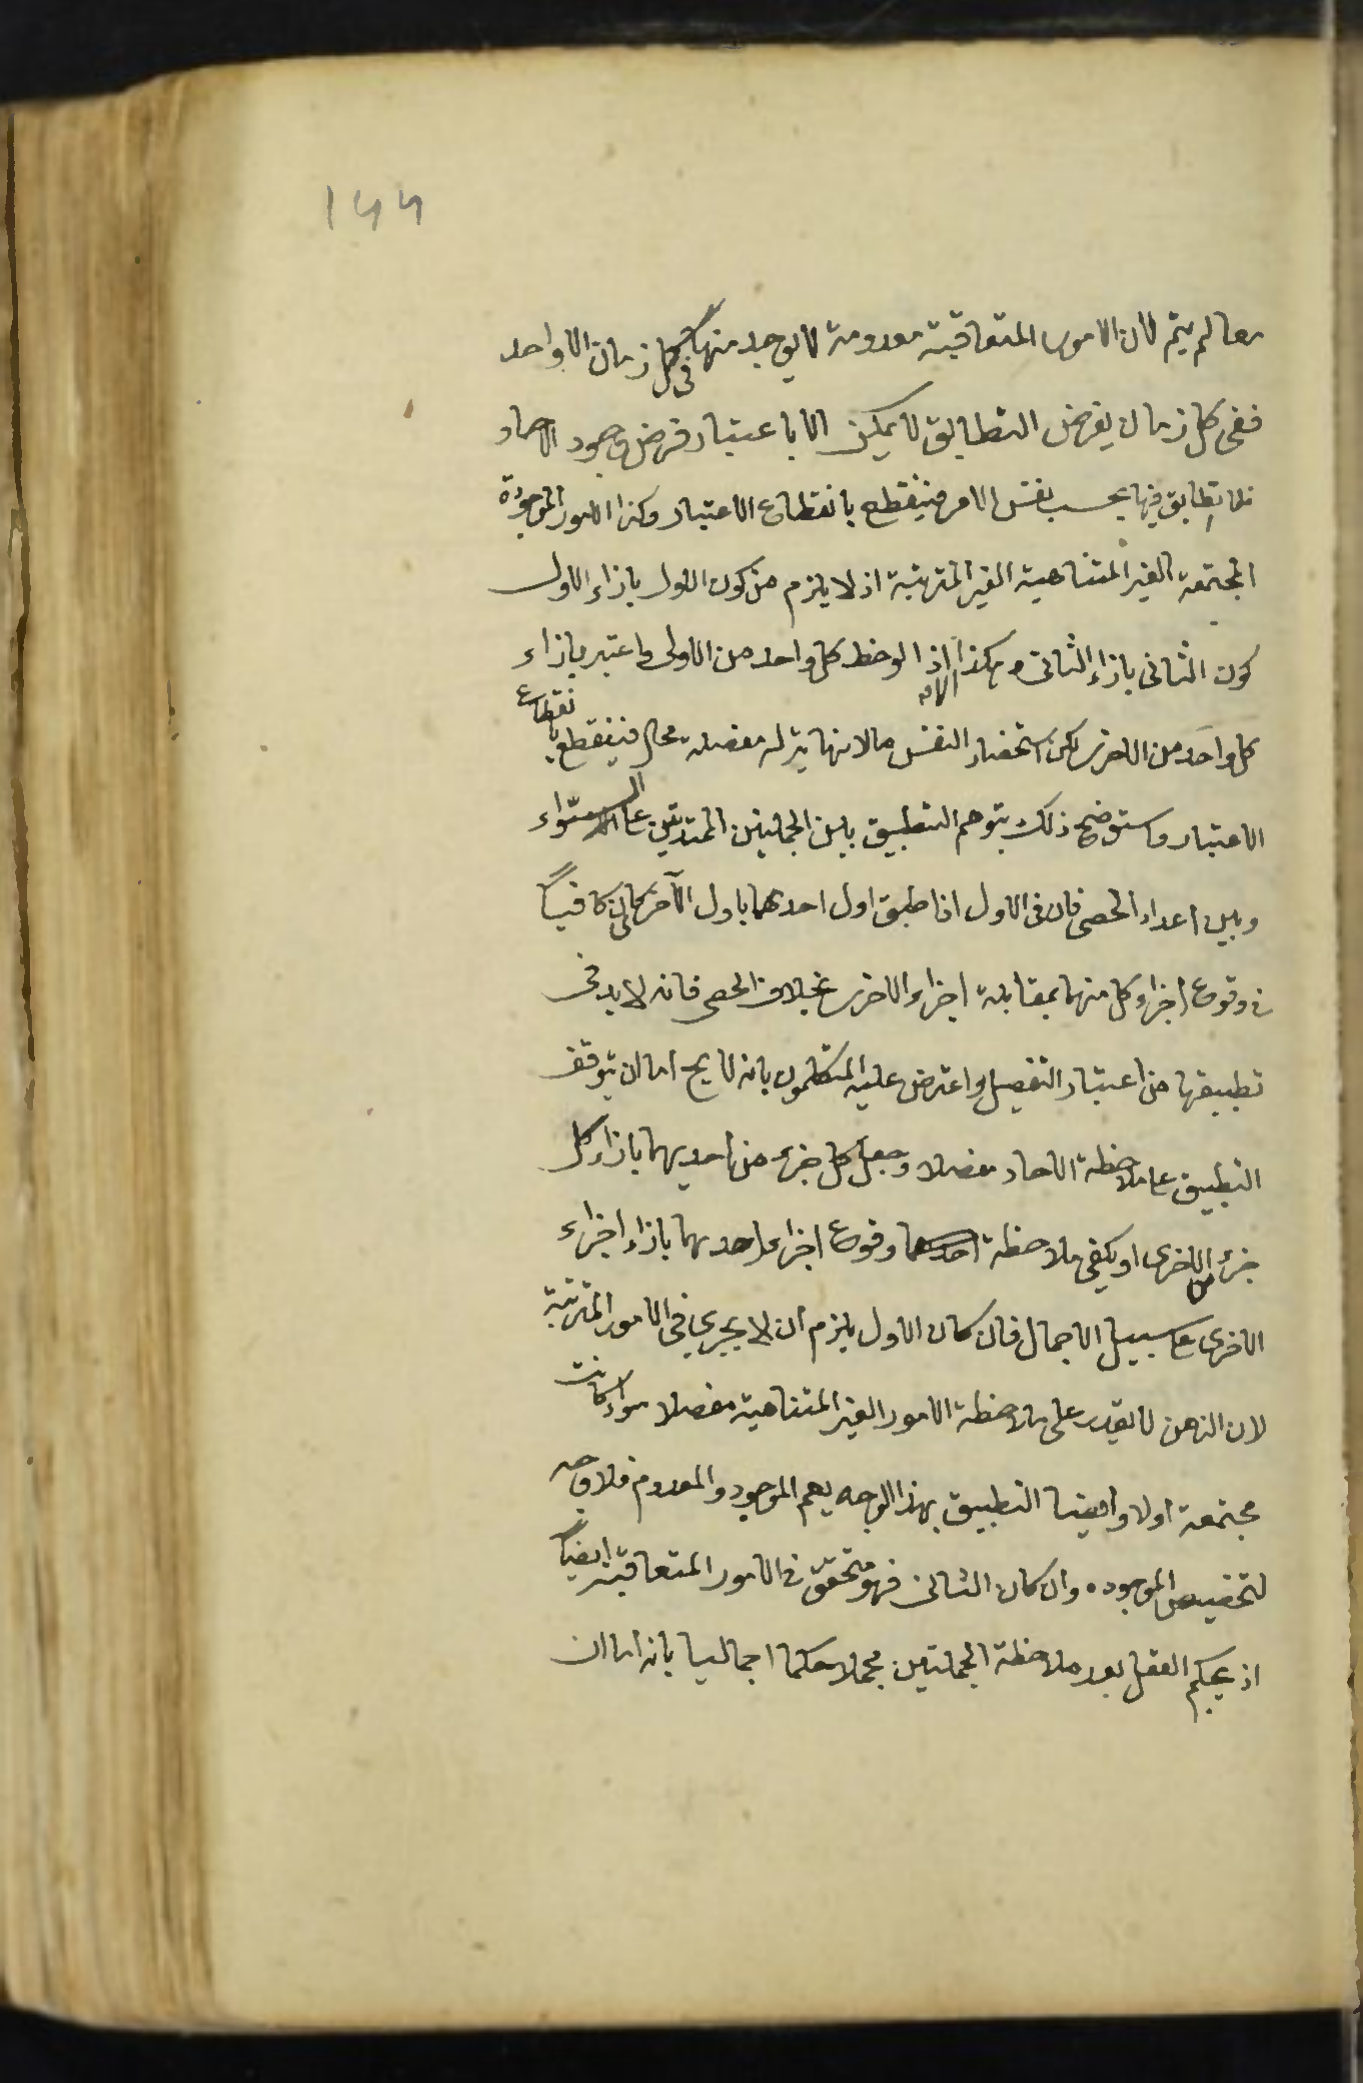 ۱۶۶
معا لم يتم لان الامور المتعاقبة معدومة لا يوجد منها فى كل زمان الا واحد
ففى كل زمان يفرض التطابق لا يمكن الا باعتبار فرض وجود الآحاد
فلا تطابق فيها بحسب نفس الامر فينقطع بانقطاع الاعتبار وكذا الامور الموجودة
المجتمعة الغير المتناهية الغير المترتبة اذ لا يلزم من كون الاول بازاء الاول
كون الثانى بازاء الثانى وهكذا الا اذا لوحظ كل واحد من الاولى واعتبر بازاء
كل واحد من الاخرى لكن استحضار النفس مالا نهاية له مفصلة محال فينقطع بانقطاع
الاعتبار واستوضح ذلك بتوهم التطبيق بين الجملتين الممتدتين على السواء
وبين اعداد الحصى فان فى الاول اذا طبق اول احدهما باول الآخر كان كافيا
فى وقوع اجزاء كل منهما بمقابلة اجزاء الاخرى بخلاف الحصى فانه لا بد فى
تطبيقها من اعتبار التفصيل واعترض عليه المتكلمون بانه لا يخ اما ان يتوقف
التطبيق على ملاحظة الآحاد مفصلا وجعل كل جزء من احديهما بازاء كل
جزء من الاخرى او يكفى ملاحظة وقوع اجزاء احديهما بازاء اجزاء
الاخرى على سبيل الاجمال فان كان الاول يلزم ان لا يجرى فى الامور المترتبة
لان الذهن لا يقدر على ملاحظة الامور الغير المتناهية مفصلا سواء كانت
مجتمعة اولا وايضا التطبيق بهذا الوجه يعم الموجود والمعدوم فلا وجه
لتخصيص الموجودة وان كان الثانى فهو متحقق فى الامور المتعاقبة ايضا
اذ يحكم العقل بعد ملاحظة الجملتين مجملا حكما اجماليا بانه اما ان